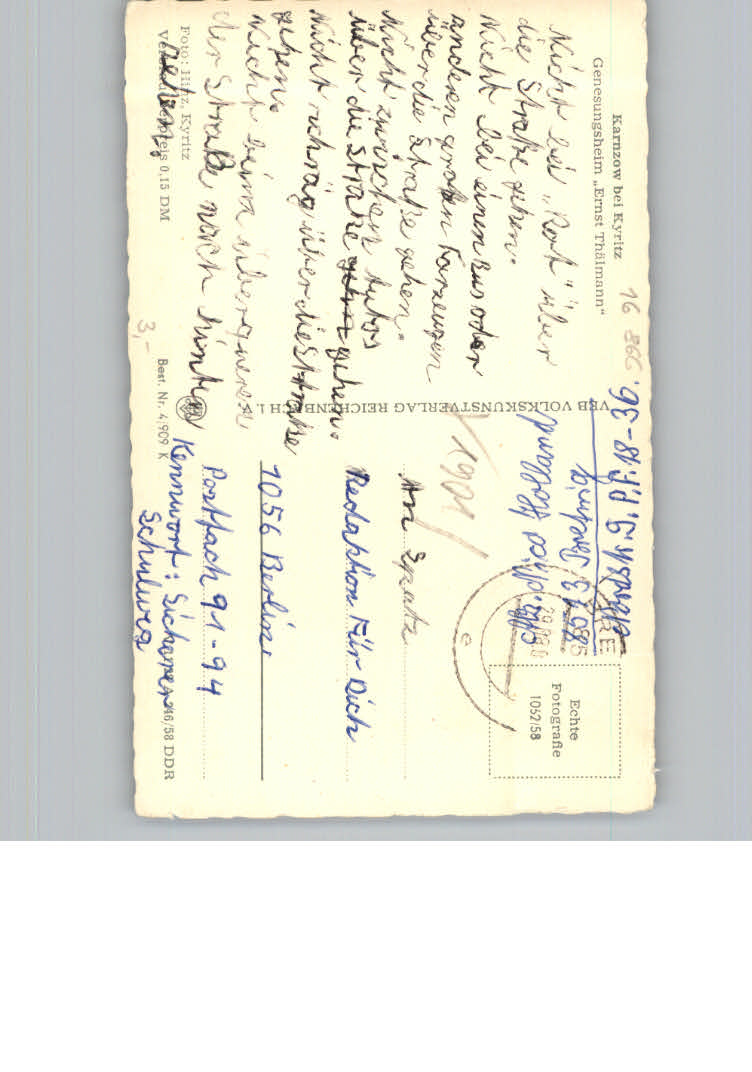 Karnzow bei Kyritz
Genesungsheim „Ernst Thälmann“
Nicht bei „Rot“ über
die Straße gehen.
Nicht bei einem Bus oder
anderen großen Farzeugen
über die Straße gehen.
Nicht zwischen Autos
über die Straße gehen.
Nicht schräg über die Straße
gehen.
Nicht beim überqueren
der Straße nach hinten
sehen.
Foto: Hinz, Kyritz
Verbraucherpreis 0,15 DM
3,-
Best. Nr. 4/909 K
VEB VOLKSKUNSTVERLAG REICHENBACH I. V.
16 866
Echte
Fotografie
1052/58
An Spatz
Redaktion Für Dich
1056 Berlin
Postfach 91-94
Kennwort: Sicherer
Schulweg
A 46/58 DDR